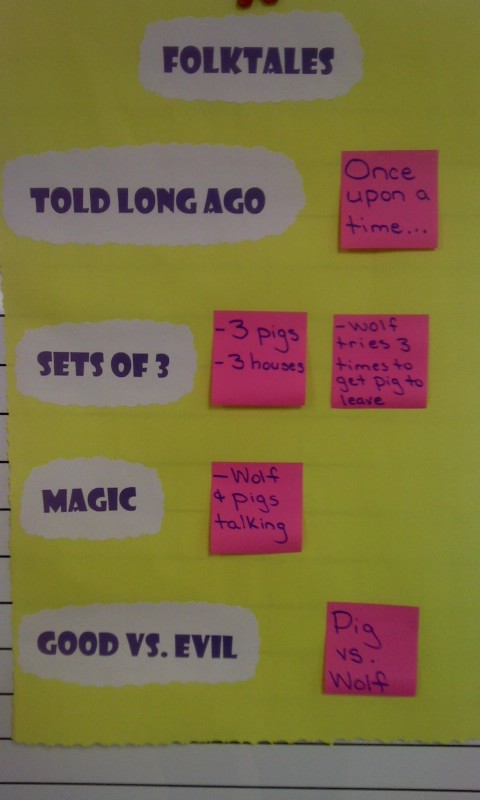 FOLKTALES
TOLD LONG AGO
Once
upon a
time...
SETS OF 3
-3 pigs
-3 houses
-wolf
tries 3
times to
get pig to
leave
MAGIC
-Wolf
& pigs
talking
GOOD VS. EVIL
Pig
vs.
Wolf